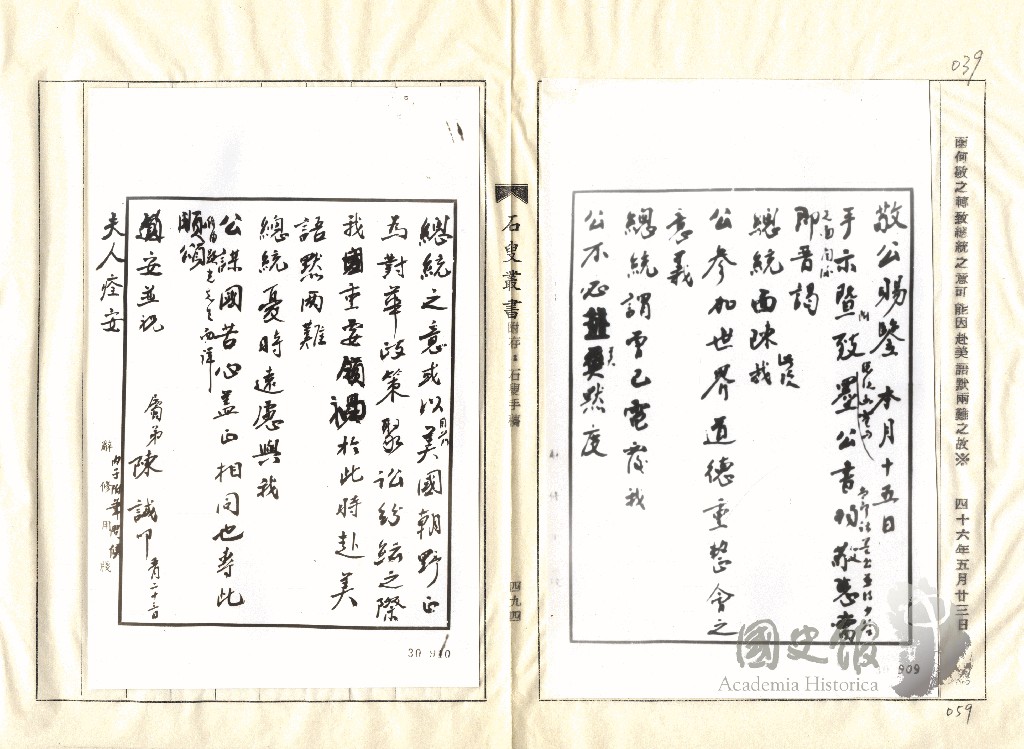 039
函何敬之轉致總統之意可能因赴美語默兩難之故※　四十六年五月廿三日
敬公賜鑒 本月十五日
手示暨
致墨公書均敬悉
即晉謁
總統面陳我
公參加世界道德重整會之
意義
總統謂曾已電復我
公不必
默度
909
國史館
Academia Historica
059
石叟叢書
附存：石叟手稿
四九四
總統之意或以目前美國朝野正
為對華政策聚訟紛紜之際
我
國重要領袖於此時赴美
語默兩難
總統憂時遠慮與我
公謀國苦心蓋正相同也專此
順頌
道安並祝
夫人痊安
弟陳誠叩
辭修用牋